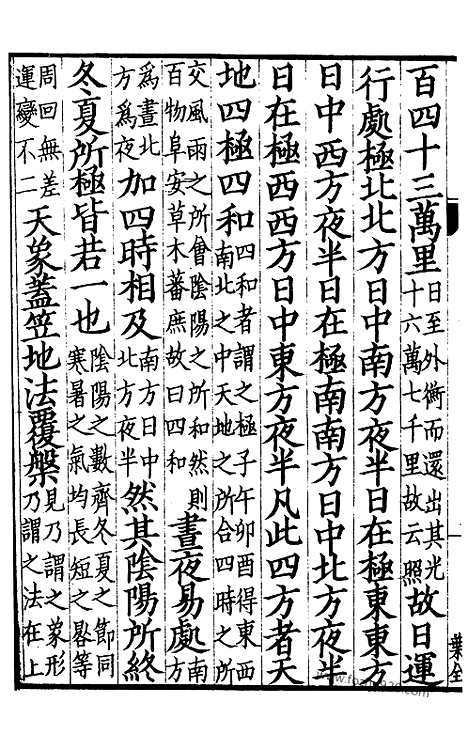 百四十三萬里日至外衡而還出其光十六萬七千里故云照故日運
行處極北北方日中南方夜半日在極東東方
日中西方夜半日在極南南方日中北方夜半
日在極西西方日中東方夜半凡此四方者天
地四極四和四和者謂之極子午卯酉得東西南北之中天地之所合四時之所
交風雨之所會陰陽之所和然則百物阜安草木蕃庶故曰四和晝夜易處南方
爲晝北方爲夜加四時相及南方日中北方夜半然其陰陽所終
冬夏所極皆若一也陰陽之數齊冬夏之節同寒暑之氣均長短之晷等
周回無差運變不二天象蓋笠地法覆槃見乃謂之象形乃謂之法在上